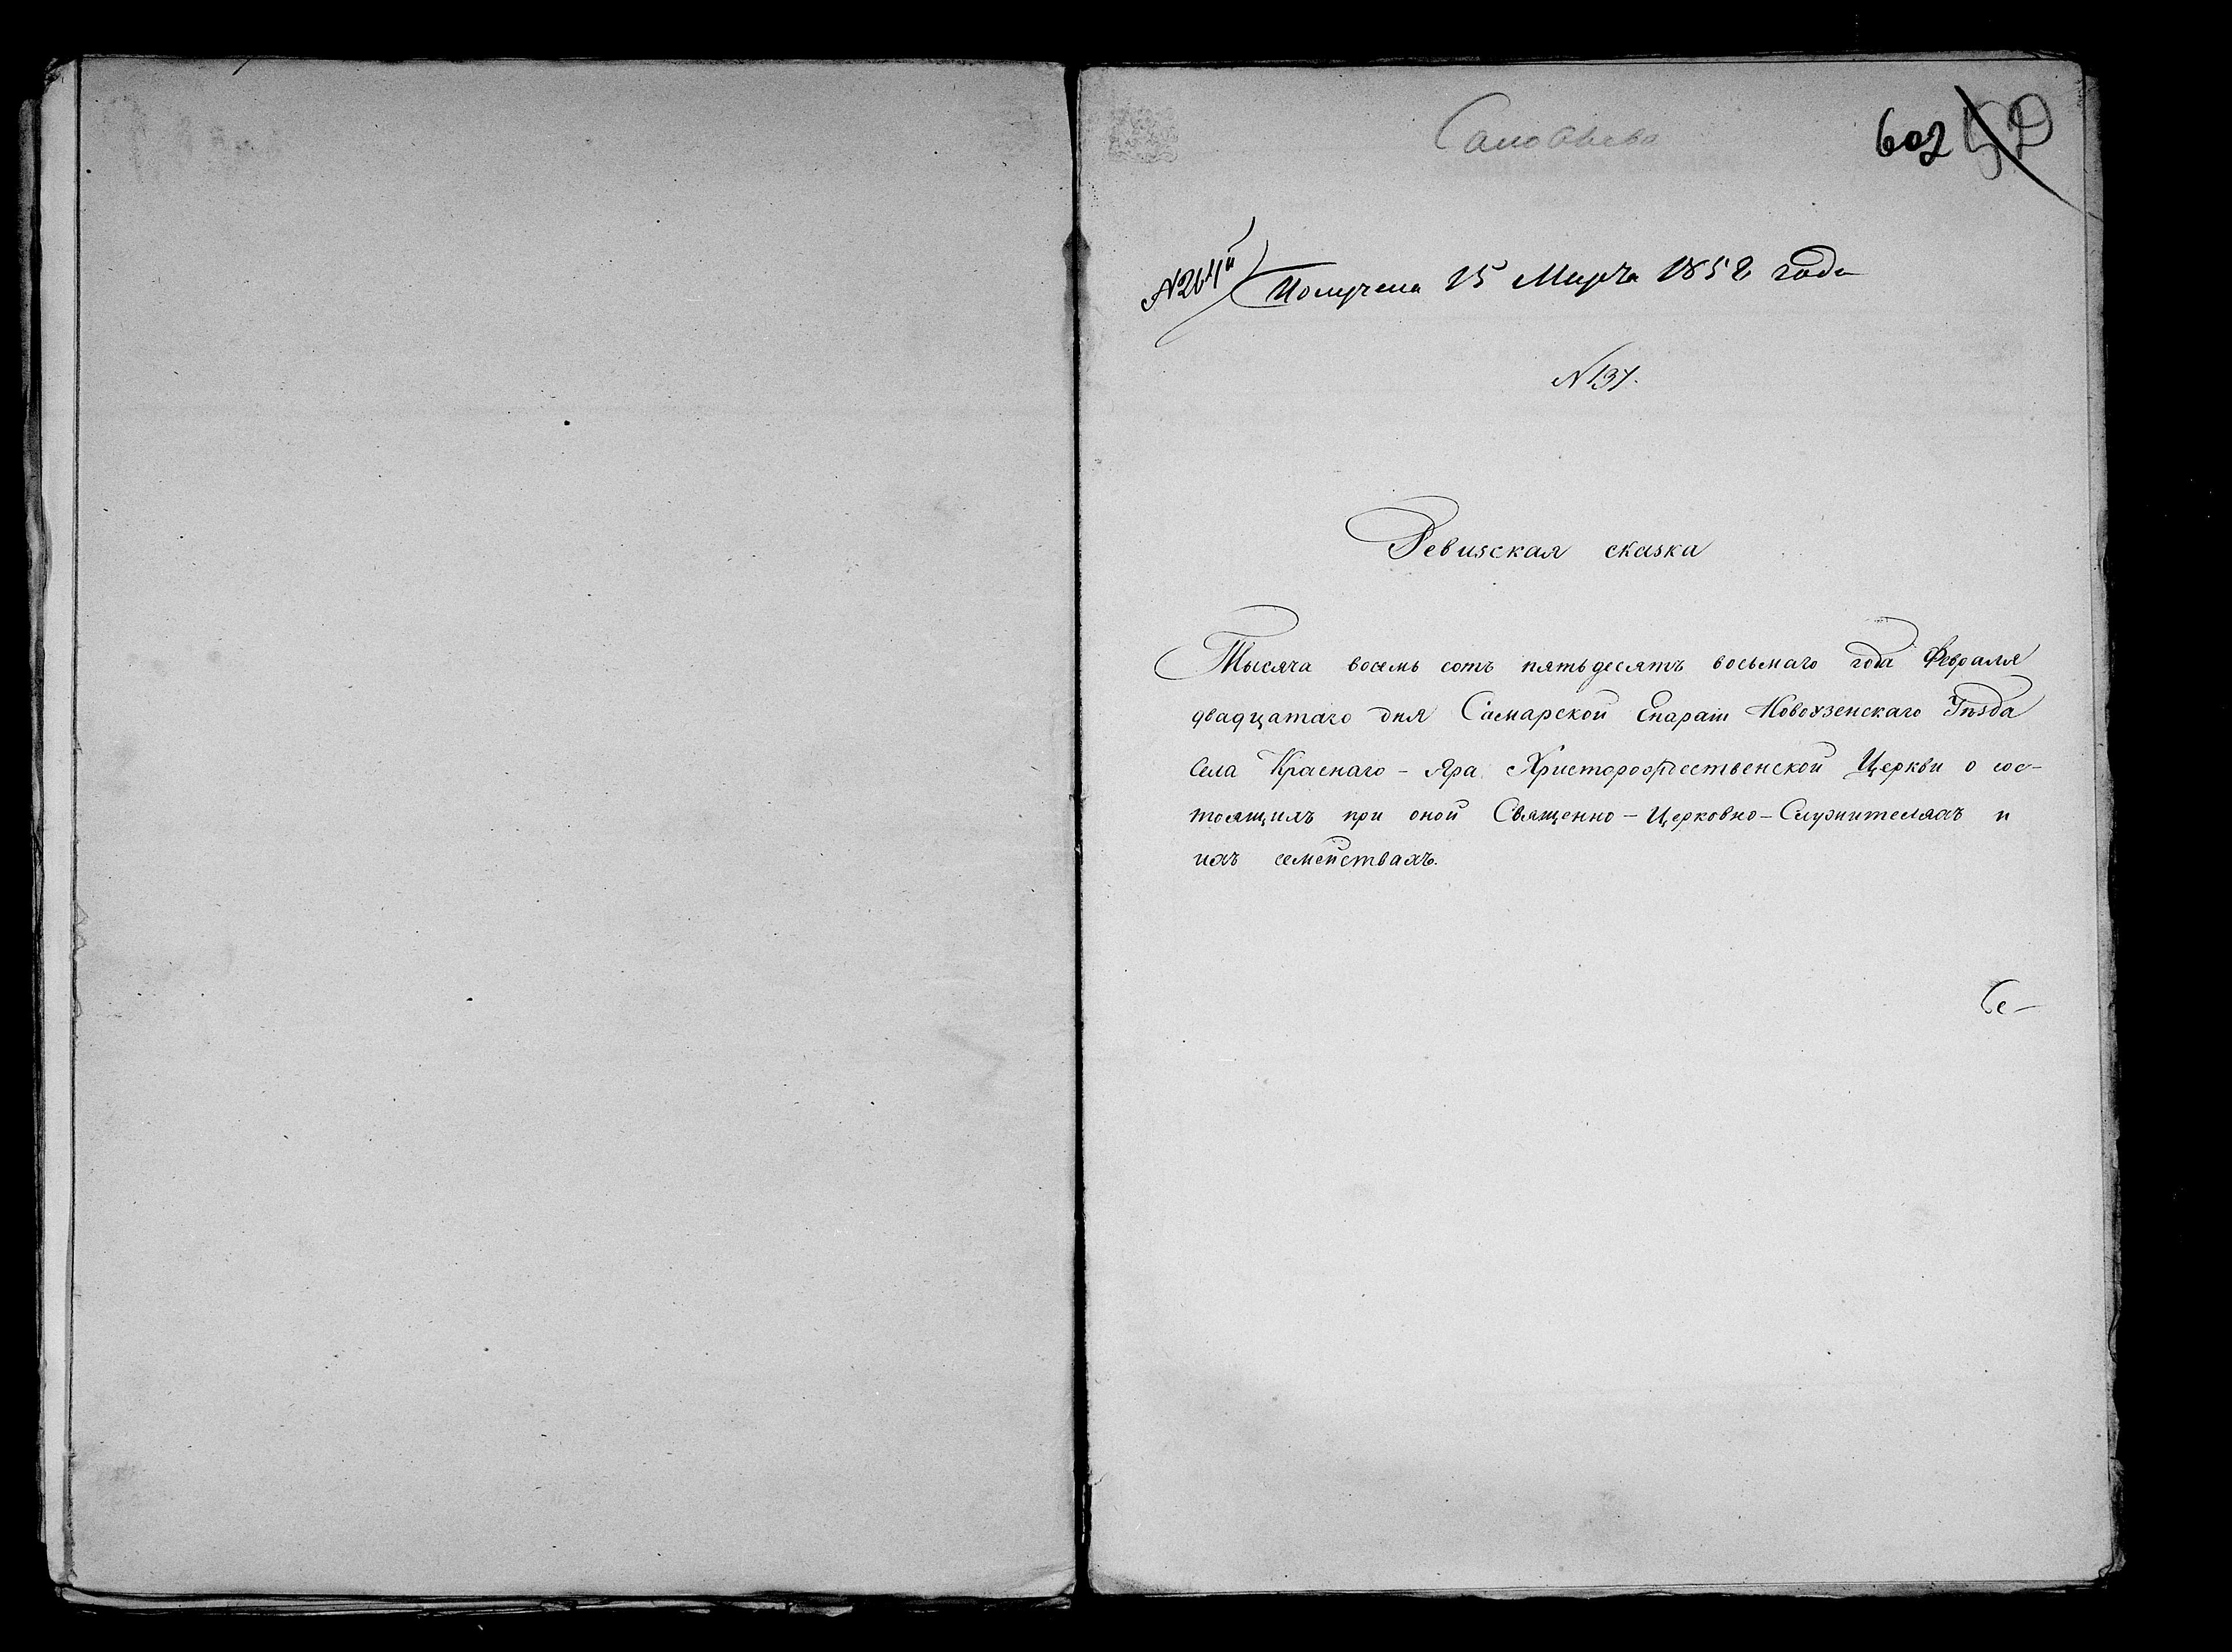 602
Получена 15 Марта 1858 года
Ревизская сказка
Тысяча восемь сотъ пятьдесятъ восьмаго года Февраля
двадцатаго дня Самарской Епархіи Новоузенскаго Уѣзда
Села Краснаго-Яра Христорождественской Церкви о сос-
тоящихъ при оной Священно-Церковно-Служителяхъ и
ихъ семействахъ.